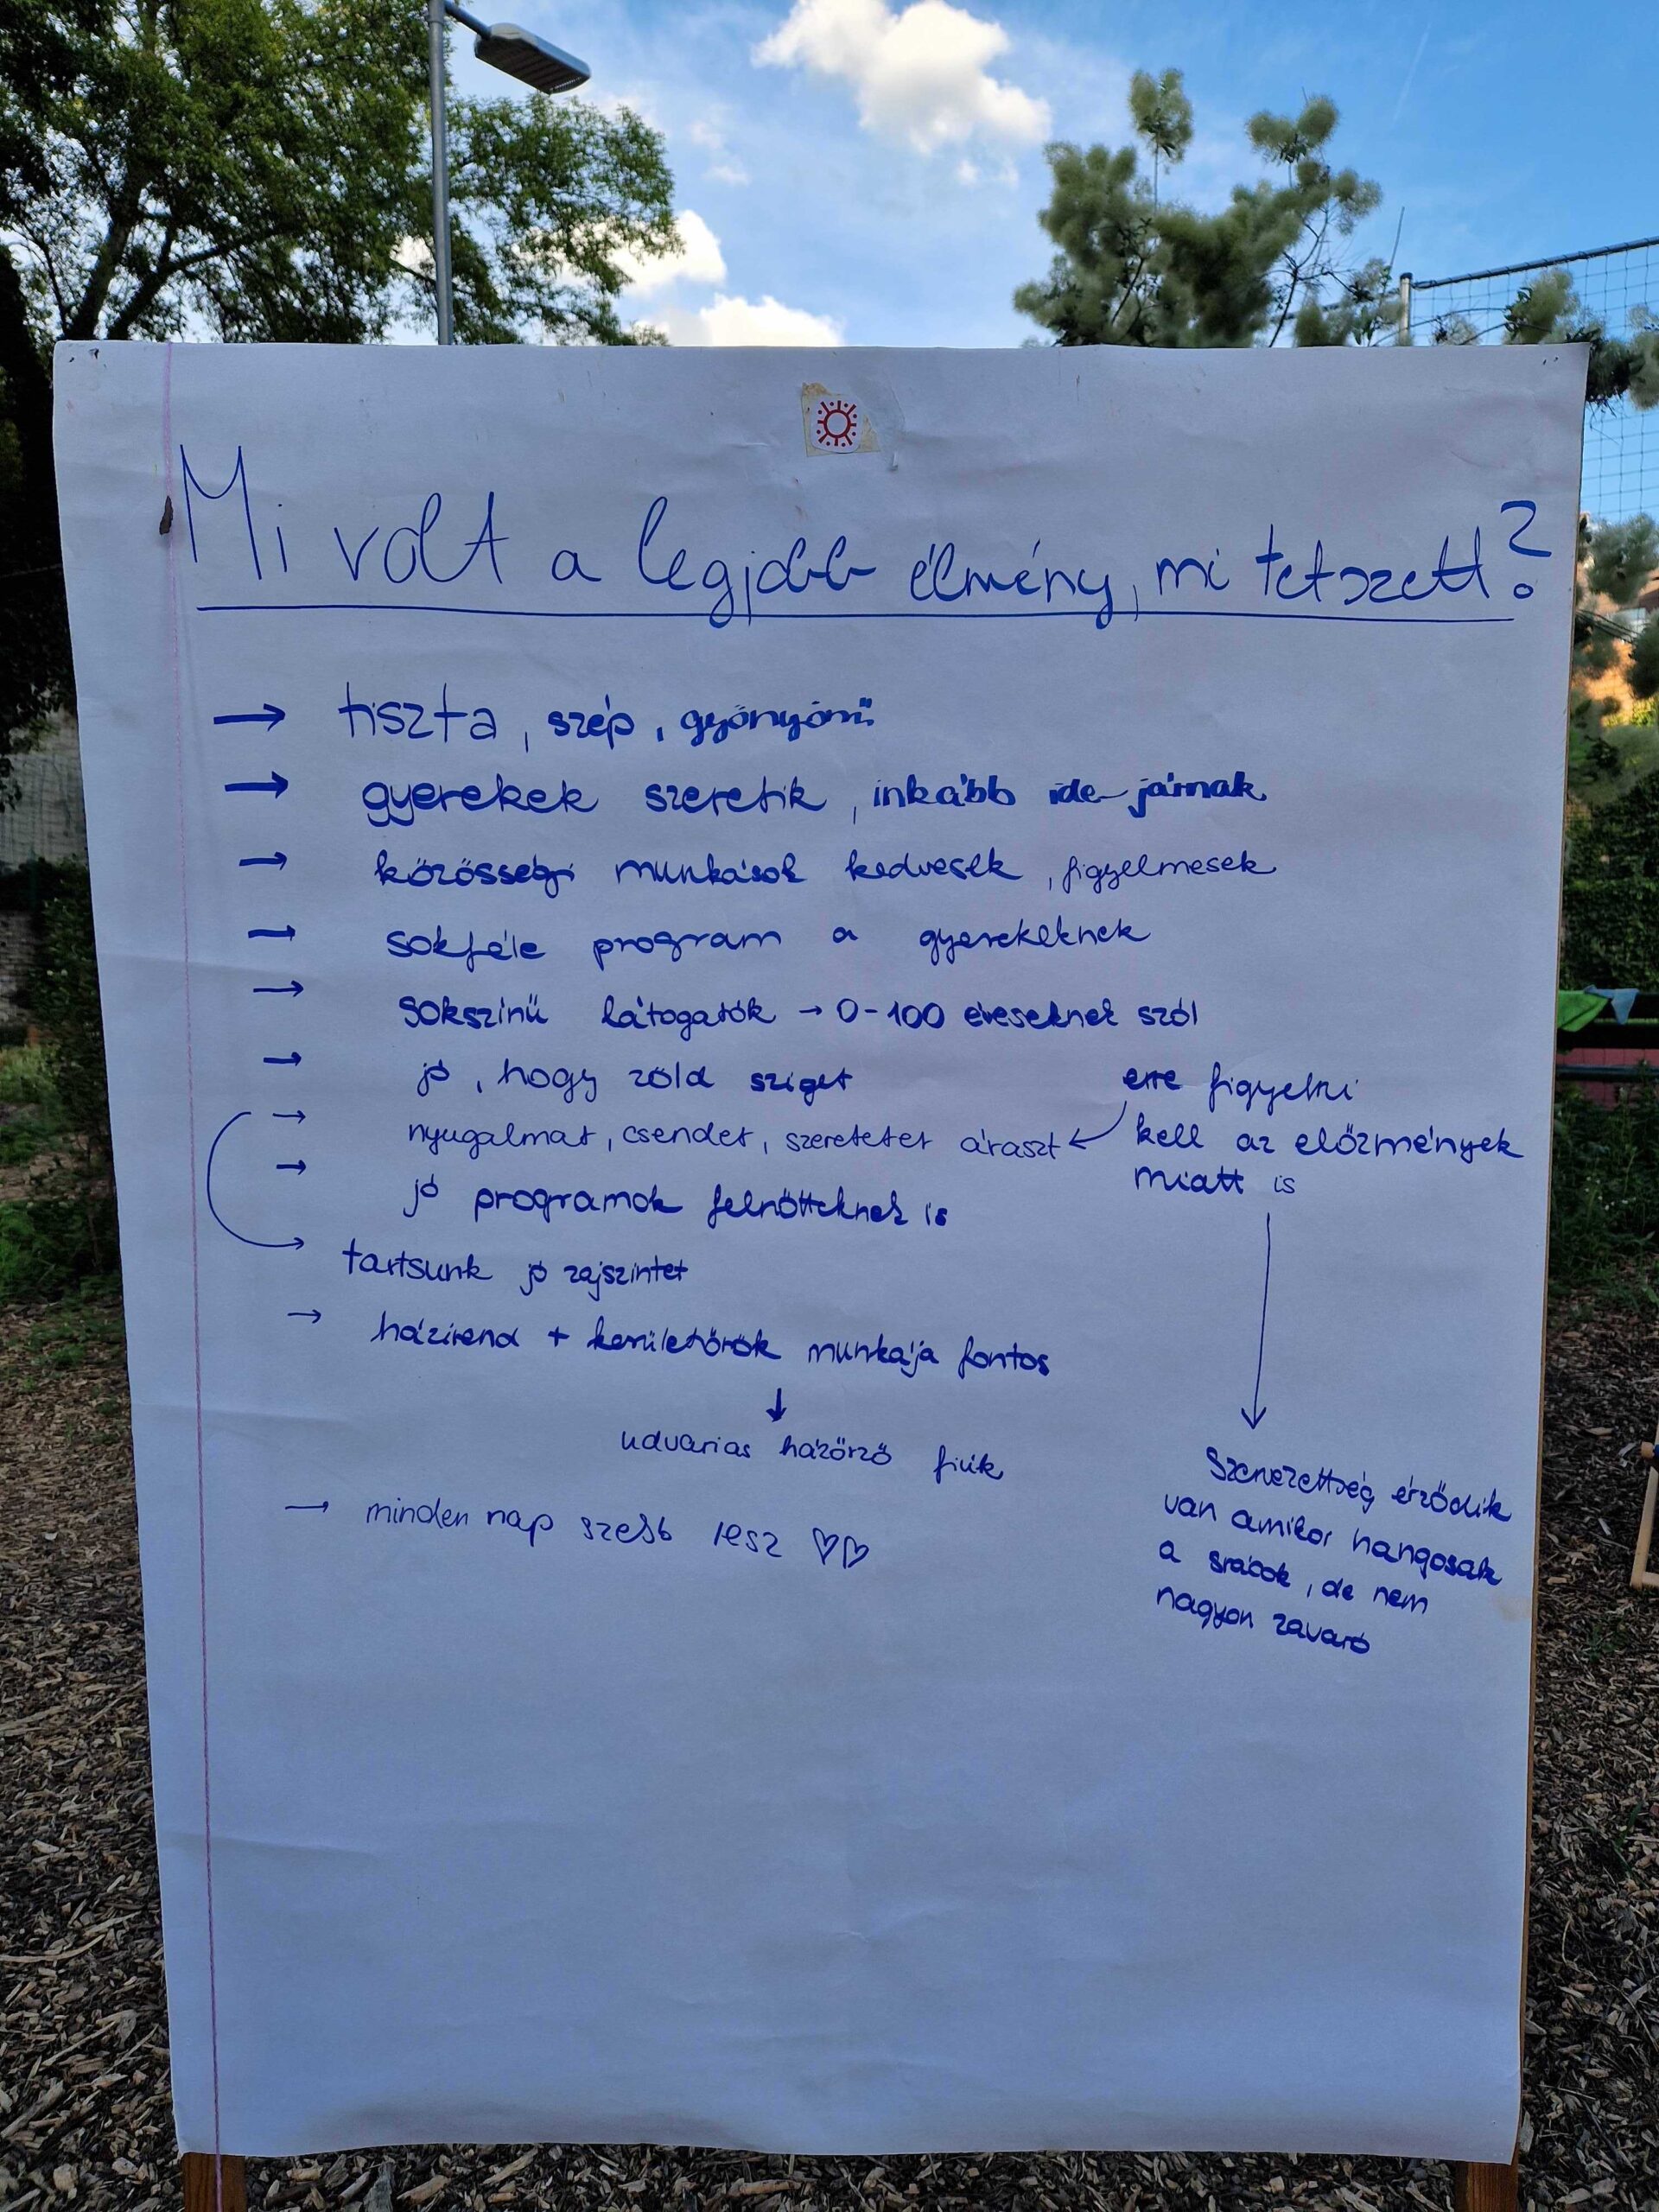 Mi volt a legjobb élmény, mi tetszett?
→ tiszta, szép, gyönyörű
→ gyerekek szeretik, inkább ide járnak
→ közösségi munkások kedvesek, figyelmesek
→ sokféle program a gyerekeknek
→ sokszínű látogatók → 0-100 éveseknek szól
→ jó, hogy zöld sziget
→ nyugalmat, csendet, szeretetet áraszt ←
erre figyelni
kell az előzmények
miatt is
→ jó programok felnőtteknek is
→ tartsunk jó zajszintet
→ házirend + kerületőrök munkája fontos
↓
udvarias házőrző fiúk
→ minden nap szebb lesz ♡♡
Szervezettség érződik
van amikor hangosak
a srácok, de nem
nagyon zavaró